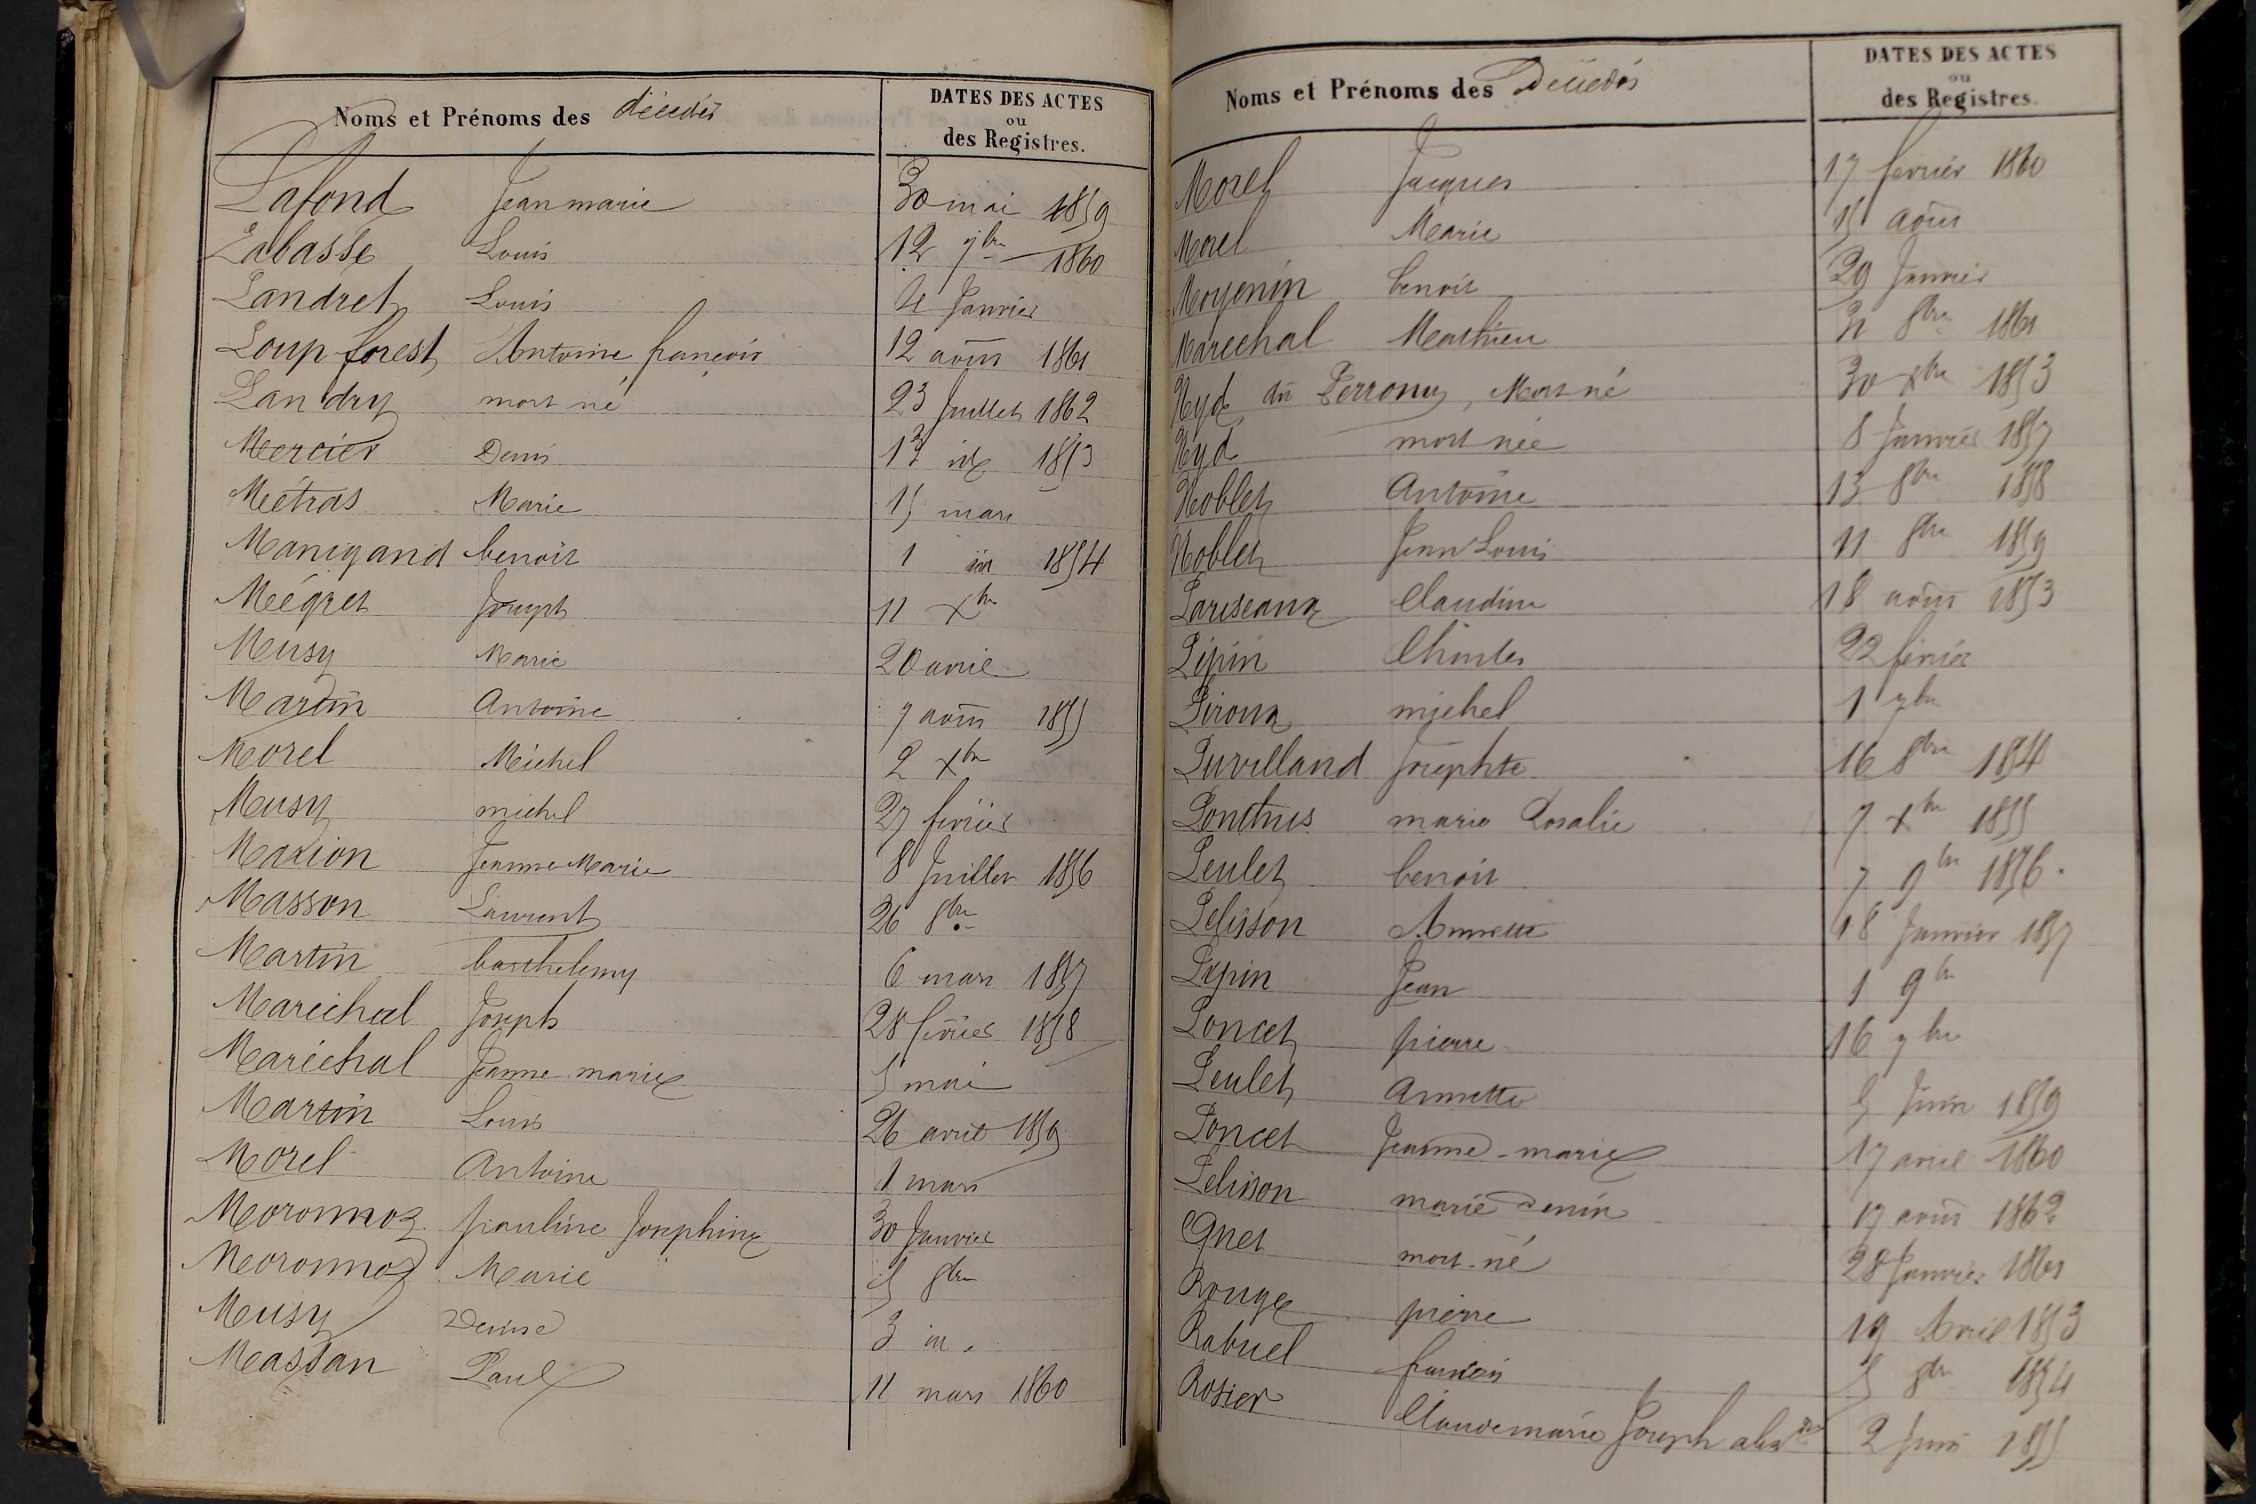 Noms et Prénoms des décédés
DATES DES ACTES
ou
des Registres.
Lafond Jean marie 30 mai 1859
Labasse Louis 12 7bre 1860
Landret Louis 4 Janvier
Loup forest Antoine françois 12 août 1861
Landry mort né 23 Juillet 1862
Mercier Denis 1853
Métras Marie 15 mars
Manigand benoit 1 1854
Mégret Joseph 11 Xbre
Musy Marie 20 avril
Martin Antoine 7 août 1855
Morel Michel 2 Xbre
Musy michel 27 février
Maxion Jeanne Marie 8 Juillet 1856
Masson Laurent 26 8bre
Martin barthelemy 6 mars 1857
Maréchal Joseph 28 février 1858
Maréchal Jeanne marie 5 mai
Martin Louis 26 avril 1859
Morel Antoine 1 mars
Moronnoz pauline Josephine 30 Janvier
Moronnoz Marie 5 8bre
Musy Denise 3
Massan Paul 11 mars 1860
Noms et Prénoms des Décédés
DATES DES ACTES
ou
des Registres.
Morel Jacques 17 février 1860
Morel Marie 15 août
Moyenin benoit 29 Janvier
Marechal Mathieu 8bre 1861
Nyd du Perronuy, Mort né 30 Xbre 1853
Nyd mort née 8 Janvier 1857
Noblet Antoine 13 8bre 1858
Noblet Jean Louis 11 8bre 1859
Pariseaux Claudine 18 août 1853
Pépin Charles 22 février
Piroux michel 1 7bre
Puvilland Josephte 16 8bre 1854
Ponthus marie Rosalie 7 Xbre 1855
Peulet benoit 7 9bre 1856.
Pelisson Annette 18 Janvier 1857
Pepin Jean 1 9bre
Poncet pierre 16 7bre
Peulet Annette 5 Juin 1859
Poncet Jeanne-marie 17 avril 1860
Pelisson marie Denin 17 août 1862
Quet mort-né 28 Janvier 1861
Rouge pierre 19 Avril 1853
Rabuel françois 5 8bre 1854
Rosier Claude marie Joseph alexdre 2 Juin 1855